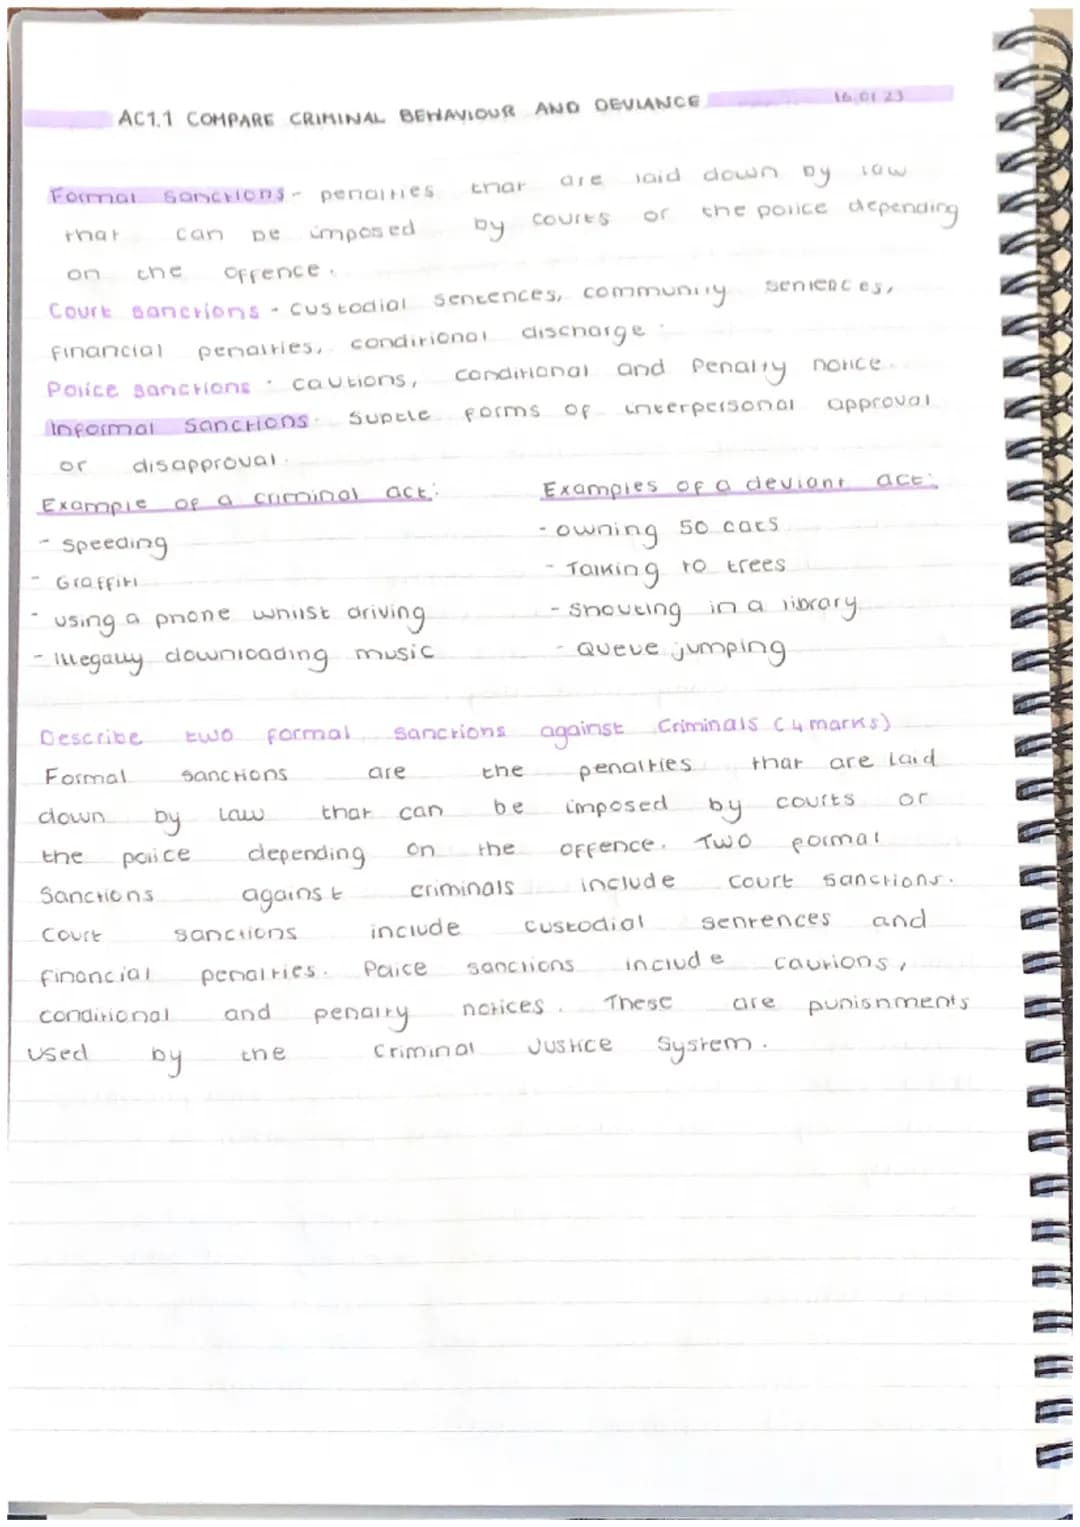 AC1.1 COMPARE CRIMINAL BEHAVIOUR AND DEVIANCE 16.01.23
Formal sanctions - penalties that are laid down by law
that can be imposed by courts or the police depending
on the offence.
Court sanctions - custodial sentences, community sentences,
financial penalties, conditional discharge.
Police sanctions - cautions, conditional and Penalty notice.
Informal Sanctions - Subtle forms of interpersonal approval
or disapproval.
Example of a criminal act: Examples of a deviant act:
- speeding - owning 50 cats
- Graffiti - Talking to trees
- using a phone whilst driving - shouting in a library
- Illegally downloading music - Queue jumping
Describe two formal sanctions against Criminals (4 marks)
Formal sanctions are the penalties that are laid
down by law that can be imposed by courts or
the police depending on the offence. Two formal
Sanctions against criminals include court sanctions.
Court sanctions include custodial sentences and
financial penalties. Police sanctions include cautions,
conditional and penalty notices. These are punishments
used by the Criminal Justice System.